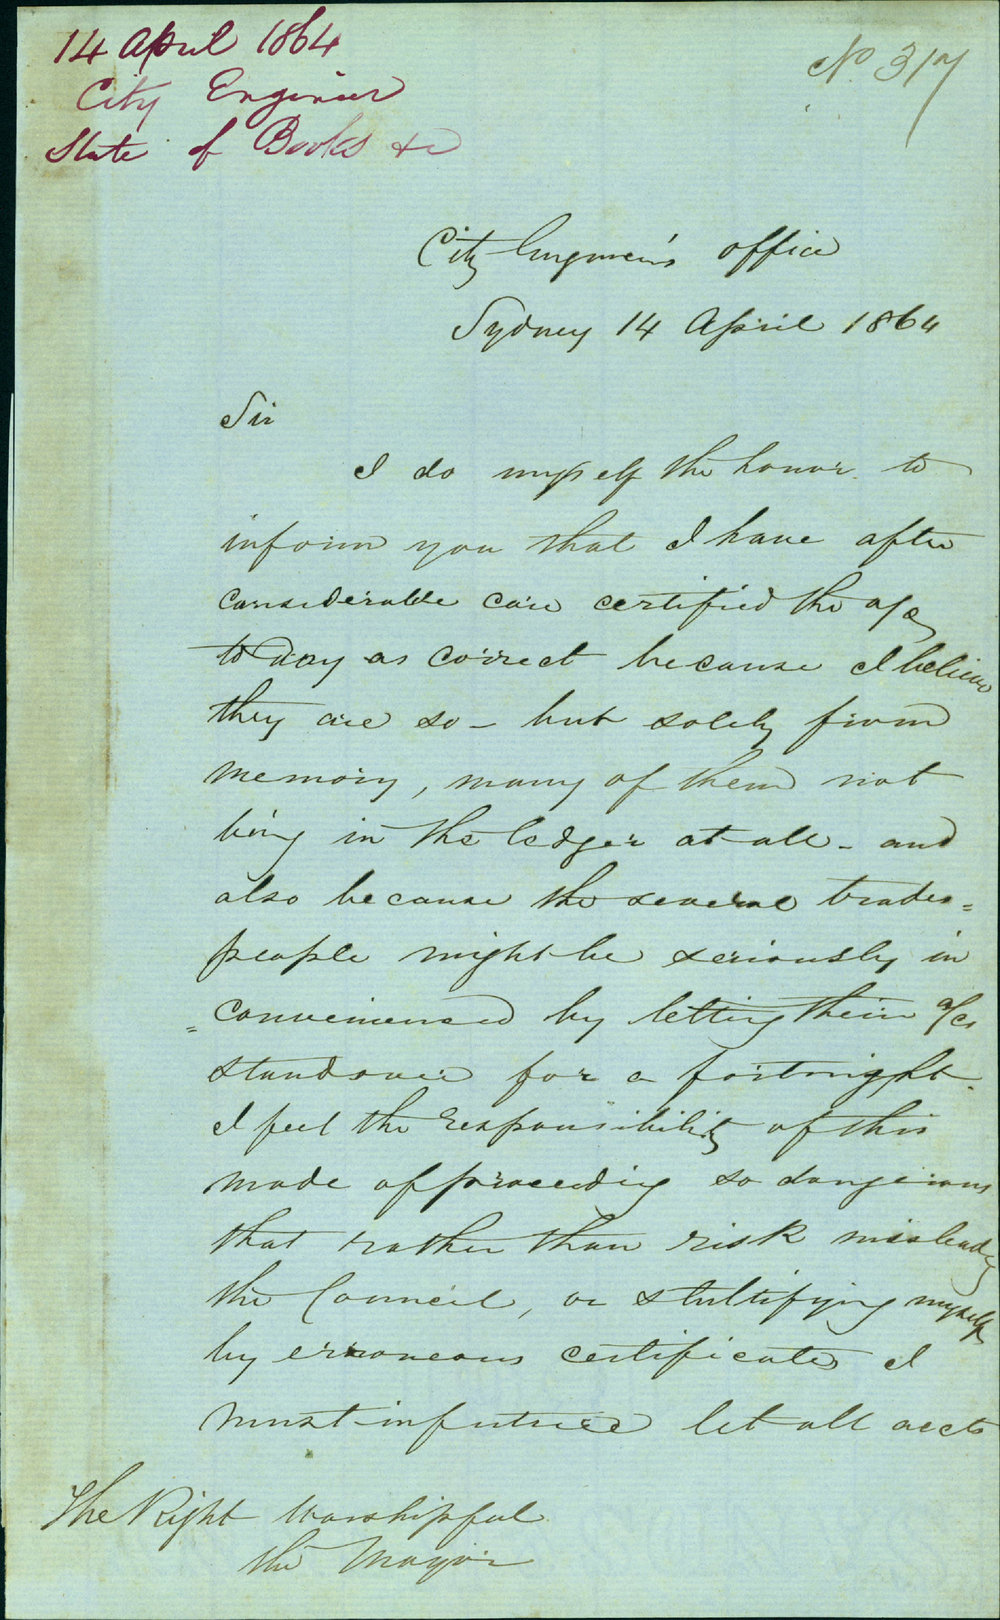 14 April 1864
City Engineer
State of Books &c
No. 317
City Engineer's office
Sydney 14 April 1864
Sir
I do myself the honor to
inform you that I have after
considerable care certified the a/cs
to day as correct because I believe
they are so - but solely from
memory, many of them not
being in the ledger at all - and
also because the several trades=
people might be seriously in
=convenienced by letting their a/cs
stand over for a fortnight.
I feel the responsibility of this
mode of proceeding so dangerous
that rather than risk misleading
the Council, or stultifying myself
by erroneous certificates I
must in future let all accts
The Right Worshipful
the Mayor